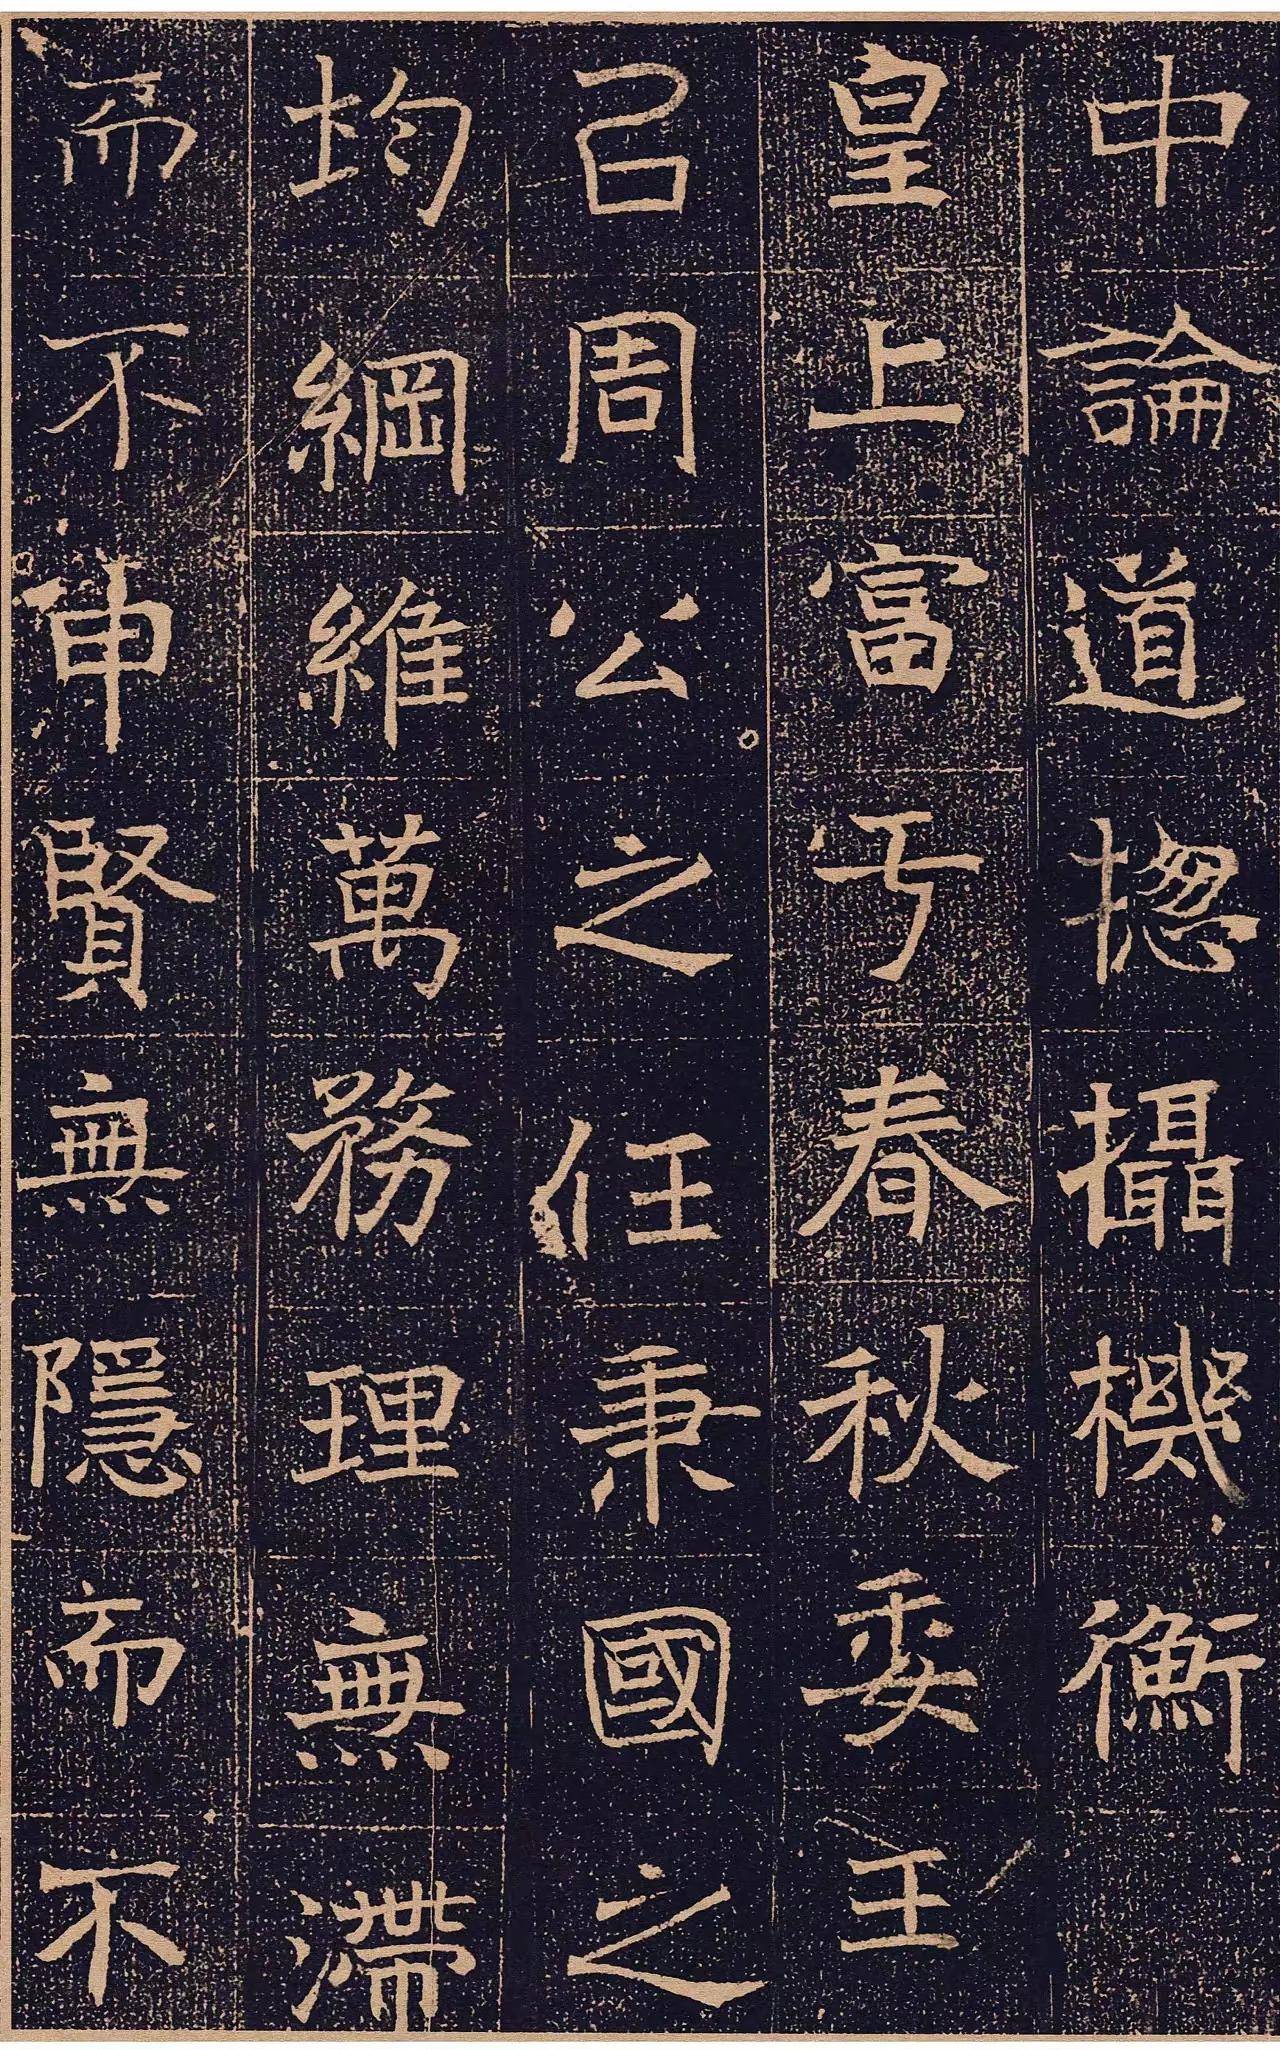 中論道揔攝機衡
皇上富亐春秋委王
㠯周公之任秉國之
均綱維萬務理無滯
而不申賢無隱而不